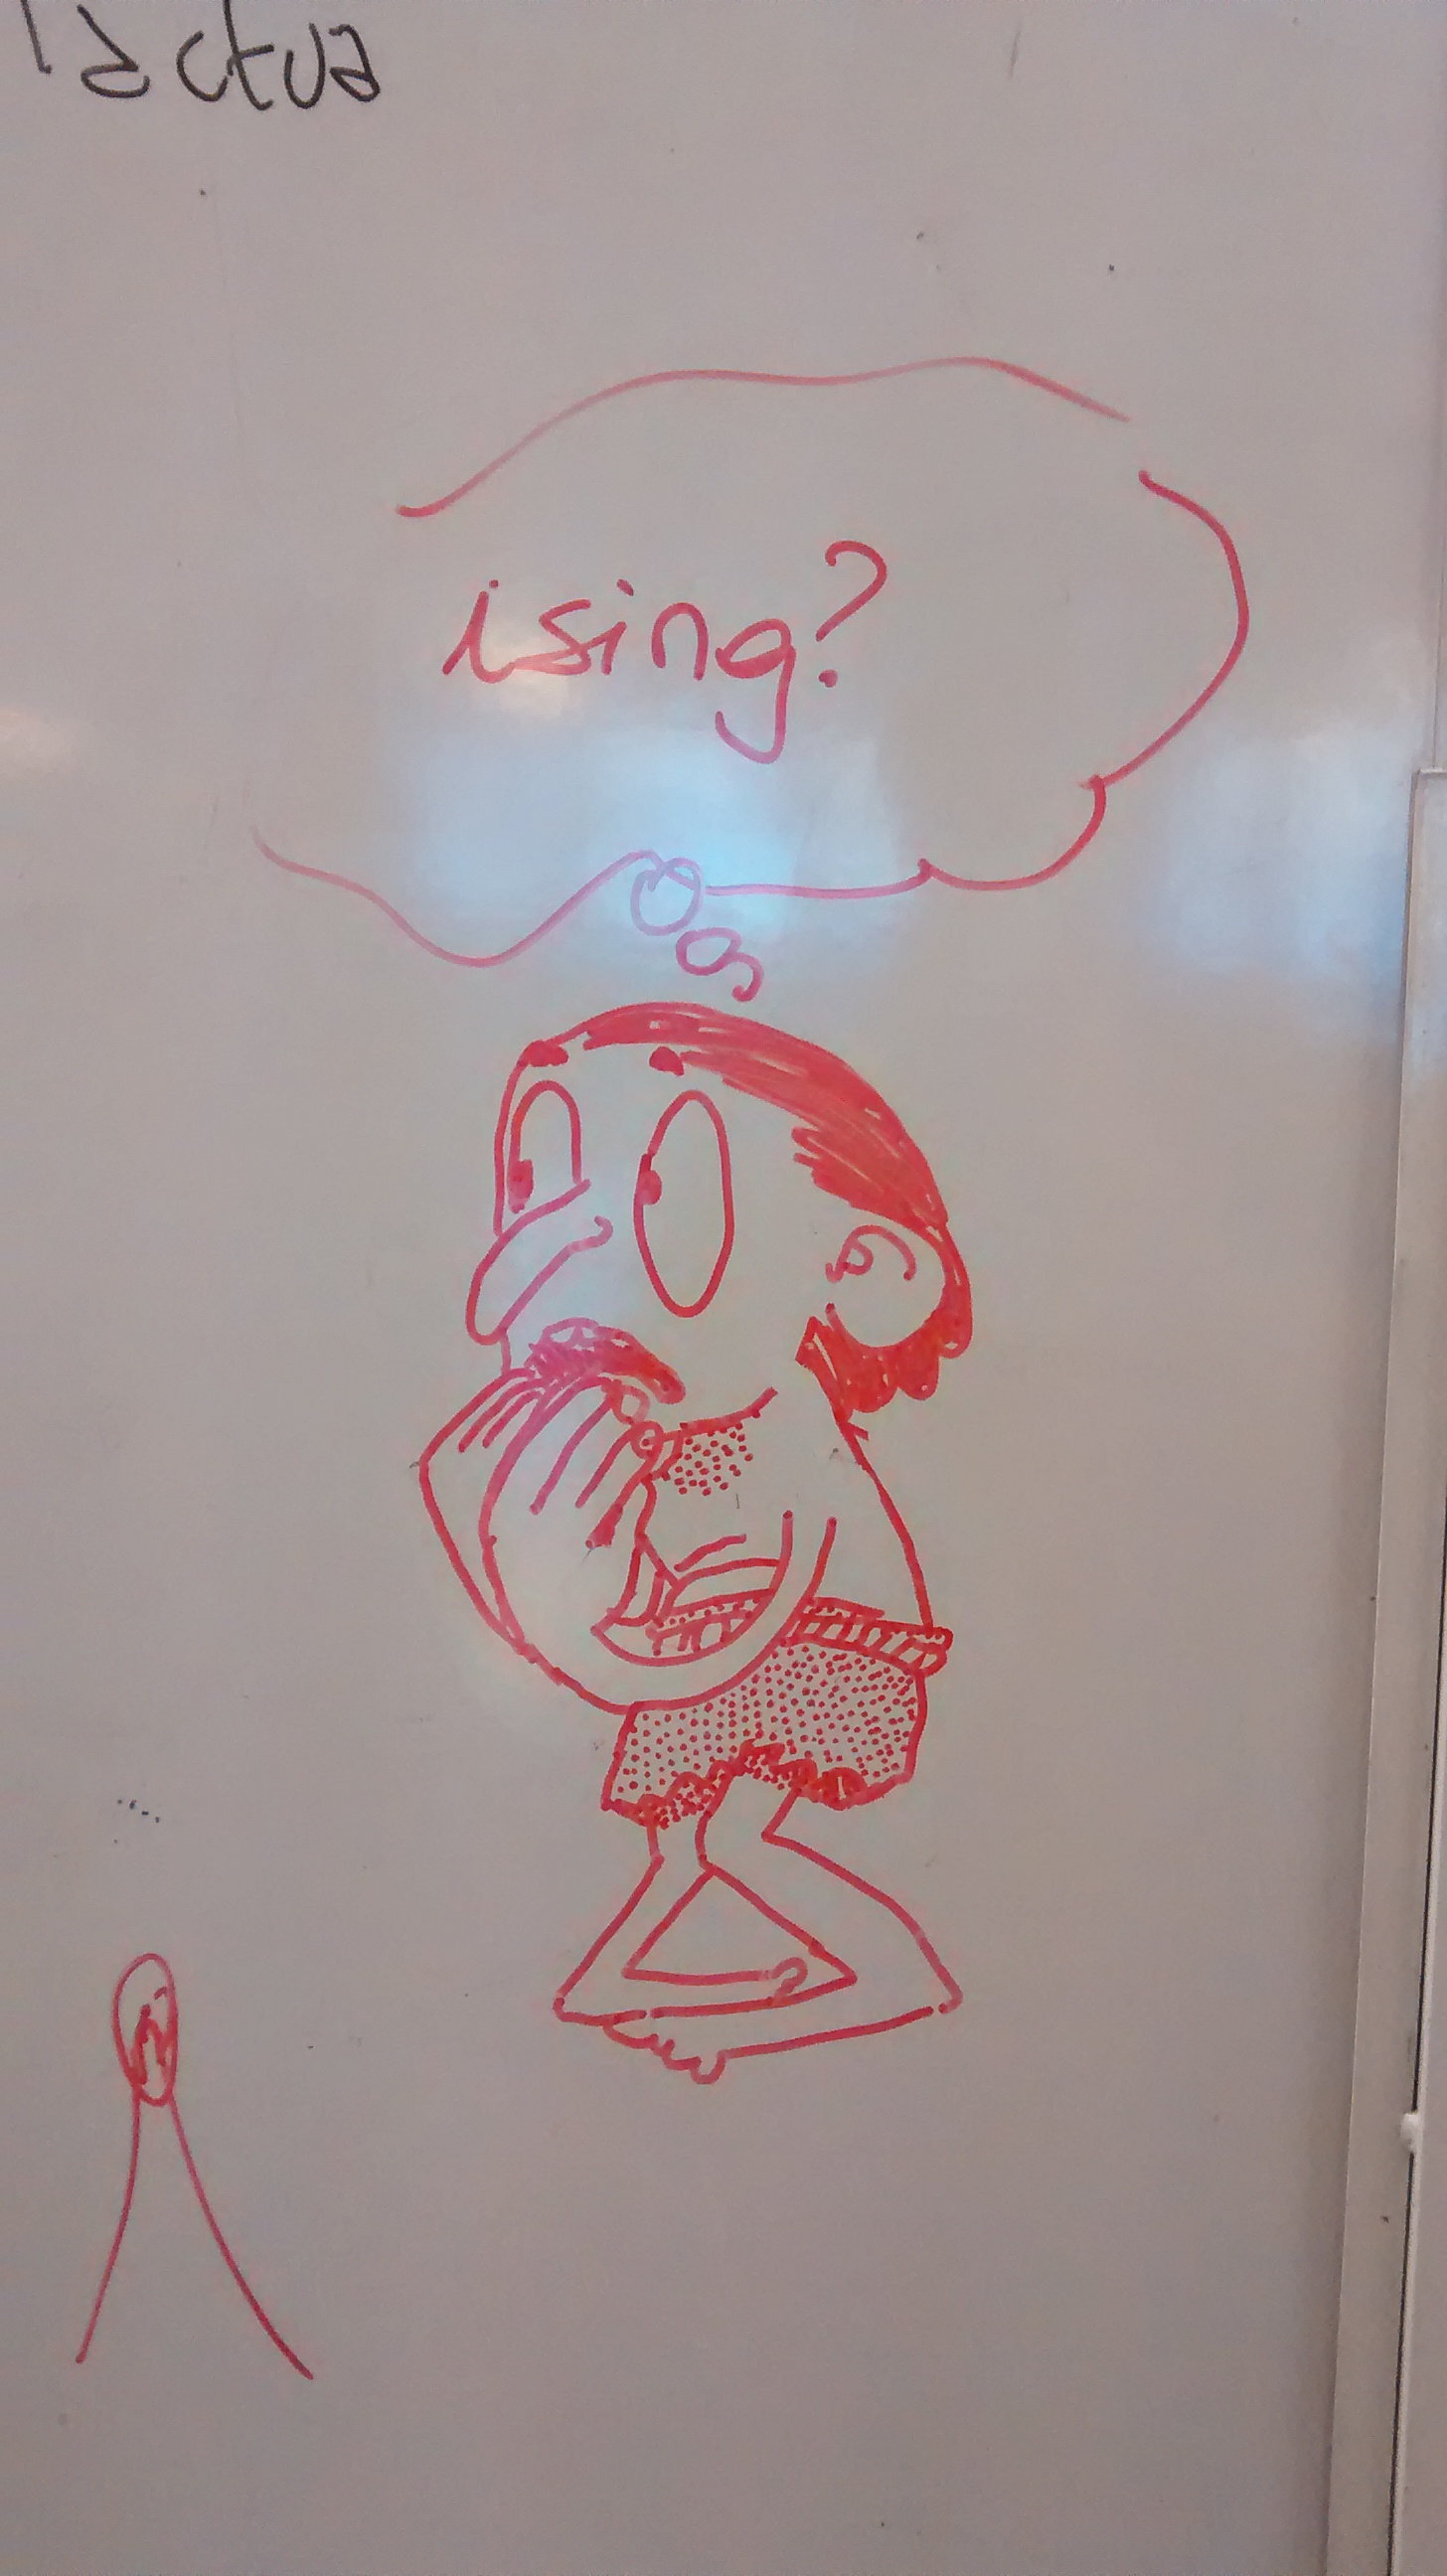 actua
ising?